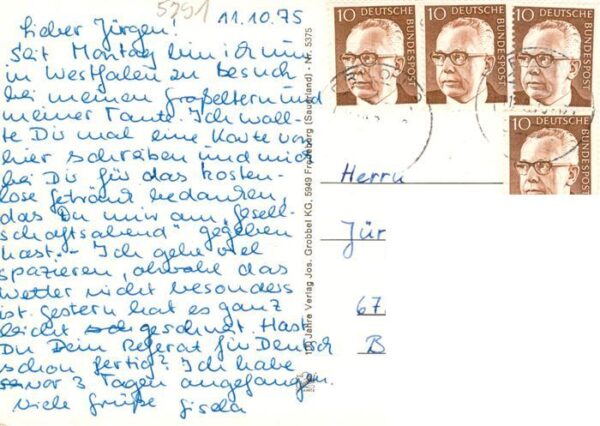 5291
11.10.75
Lieber Jürgen!
Seit Montag bin ich nun
in Westfalen zu Besuch
bei meinen Großeltern und
meiner Tante. Ich woll-
te Dir mal eine Karte von
hier schreiben und mich
bei Dir für das kosten-
lose Getränk bedanken,
das Du mir am „Gesell-
schaftsabend" gegeben
hast. - Ich gehe viel
spazieren, obwohl das
Wetter nicht besonders
ist. Gestern hat es ganz
leicht geschneit. Hast
Du Dein Referat für Deutsch
schon fertig? Ich habe
vor 3 Tagen angefangen.
Viele Grüße Gisela
Jahre Verlag Jos. Grobbel KG, 5949 Fredeburg (Sauerland) · Nr. 5375
10 DEUTSCHE BUNDESPOST
10 DEUTSCHE BUNDESPOST
10 DEUTSCHE BUNDESPOST
10 DEUTSCHE BUNDESPOST
Herrn
Jür
67
B